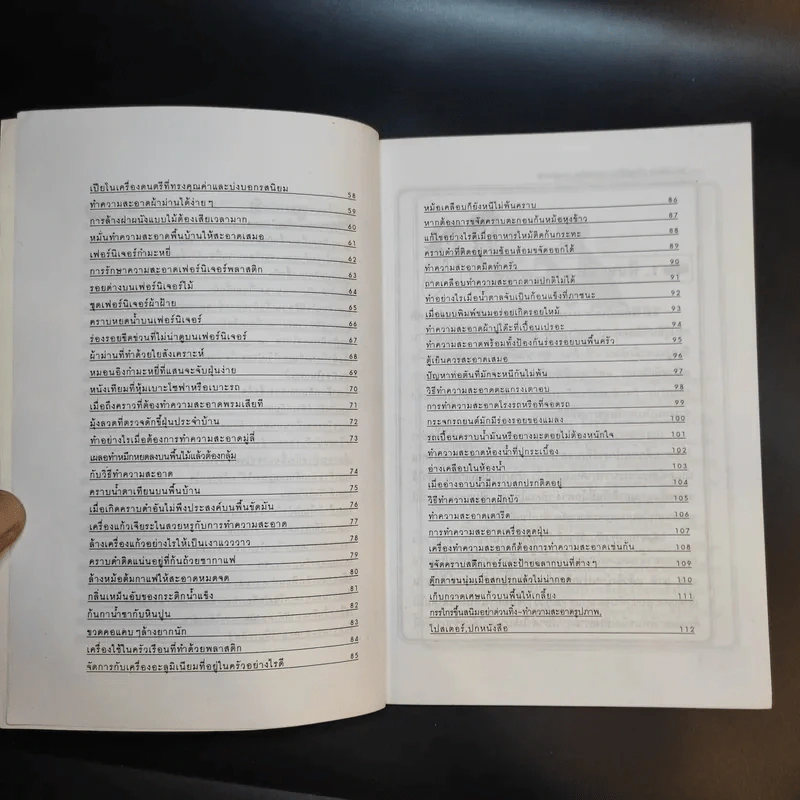 เปียโนเครื่องดนตรีที่ทรงคุณค่าและบ่งบอกรสนิยม 58
ทำความสะอาดผ้าม่านได้ง่ายๆ 59
การล้างฝาผนังแบบไม่ต้องเสียเวลามาก 60
หมั่นทำความสะอาดพื้นบ้านให้สะอาดเสมอ 61
เฟอร์นิเจอร์กำมะหยี่ 62
การรักษาความสะอาดเฟอร์นิเจอร์พลาสติก 63
รอยด่างบนเฟอร์นิเจอร์ไม้ 64
ชุดเฟอร์นิเจอร์ผ้าฝ้าย 65
คราบหยดน้ำบนเฟอร์นิเจอร์ 66
ร่องรอยขีดข่วนที่ไม่น่าดูบนเฟอร์นิเจอร์ 67
ผ้าม่านที่ทำด้วยใยสังเคราะห์ 68
หมอนอิงกำมะหยี่ที่แสนจะจับฝุ่นง่าย 69
หนังเทียมที่หุ้มเบาะโซฟาหรือเบาะรถ 70
เมื่อถึงคราวที่ต้องทำความสะอาดพรมเสียที 71
มุ้งลวดที่ตรวจดักขี้ฝุ่นประจำบ้าน 72
ทำอย่างไรเมื่อต้องการทำความสะอาดมู่ลี่ 73
เผลอทำหมึกหยดลงบนพื้นไม้แล้วต้องกลุ้ม
กับวิธีทำความสะอาด 74
คราบน้ำตาเทียนบนพื้นบ้าน 75
เมื่อเกิดคราบดำอันไม่พึงประสงค์บนพื้นขัดมัน 76
เครื่องแก้วเจียระไนสวยหรูกับการทำความสะอาด 77
ล้างเครื่องแก้วอย่างไรให้เป็นเงาแวววาว 78
คราบดำติดแน่นอยู่ที่ก้นถ้วยชากาแฟ 79
ล้างหม้อต้มกาแฟให้สะอาดหมดจด 80
กลิ่นเหม็นอับของกระติกน้ำแข็ง 81
ก้นกาน้ำชากับหินปูน 82
ขวดคอแคบๆล้างยากนัก 83
เครื่องใช้ในครัวเรือนที่ทำด้วยพลาสติก 84
จัดการกับเครื่องอะลูมิเนียมที่อยู่ในครัวอย่างไรดี 85
หม้อเคลือบก็ยังหนีไม่พ้นคราบ 86
หากต้องการขจัดคราบตะกอนก้นหม้อหุงข้าว 87
แก้ไขอย่างไรดีเมื่ออาหารไหม้ติดก้นกระทะ 88
คราบดำที่ติดอยู่ตามช้อนส้อมขจัดออกได้ 89
ทำความสะอาดมีดทำครัว 90
ถาดเคลือบทำความสะอาดตามปกติไม่ได้ 91
ทำอย่างไรเมื่อน้ำตาลจับเป็นก้อนแข็งที่ภาชนะ 92
เมื่อแบบพิมพ์ขนมอร่อยเกิดรอยไหม้ 93
ทำความสะอาดผ้าปูโต๊ะที่เปื้อนเปรอะ 94
ทำความสะอาดพร้อมทั้งป้องกันร่องรอยบนพื้นครัว 95
ตู้เย็นควรสะอาดเสมอ 96
ปัญหาท่อตันที่มักจะหนีกันไม่พ้น 97
วิธีทำความสะอาดตะแกรงเตาอบ 98
การทำความสะอาดโรงรถหรือที่จอดรถ 99
กระจกรถยนต์มักมีร่องรอยของแมลง 100
รถเปื้อนคราบน้ำมันหรือยางมะตอยไม่ต้องหนักใจ 101
ทำความสะอาดห้องน้ำที่ปูกระเบื้อง 102
อ่างเคลือบในห้องน้ำ 103
เมื่ออ่างอาบน้ำมีคราบสกปรกติดอยู่ 104
วิธีทำความสะอาดฝักบัว 105
ทำความสะอาดเตารีด 106
การทำความสะอาดเครื่องดูดฝุ่น 107
เครื่องทำความสะอาดก็ต้องการทำความสะอาดเช่นกัน 108
ขจัดคราบสติกเกอร์และป้ายฉลากบนที่ต่างๆ 109
ตุ๊กตาขนนุ่มเมื่อสกปรกแล้วไม่น่ากอด 110
เก็บกวาดเศษแก้วบนพื้นให้เกลี้ยง 111
กรรไกรขึ้นสนิมอย่าด่วนทิ้ง-ทำความสะอาดรูปภาพ,
โปสเตอร์,ปกหนังสือ 112